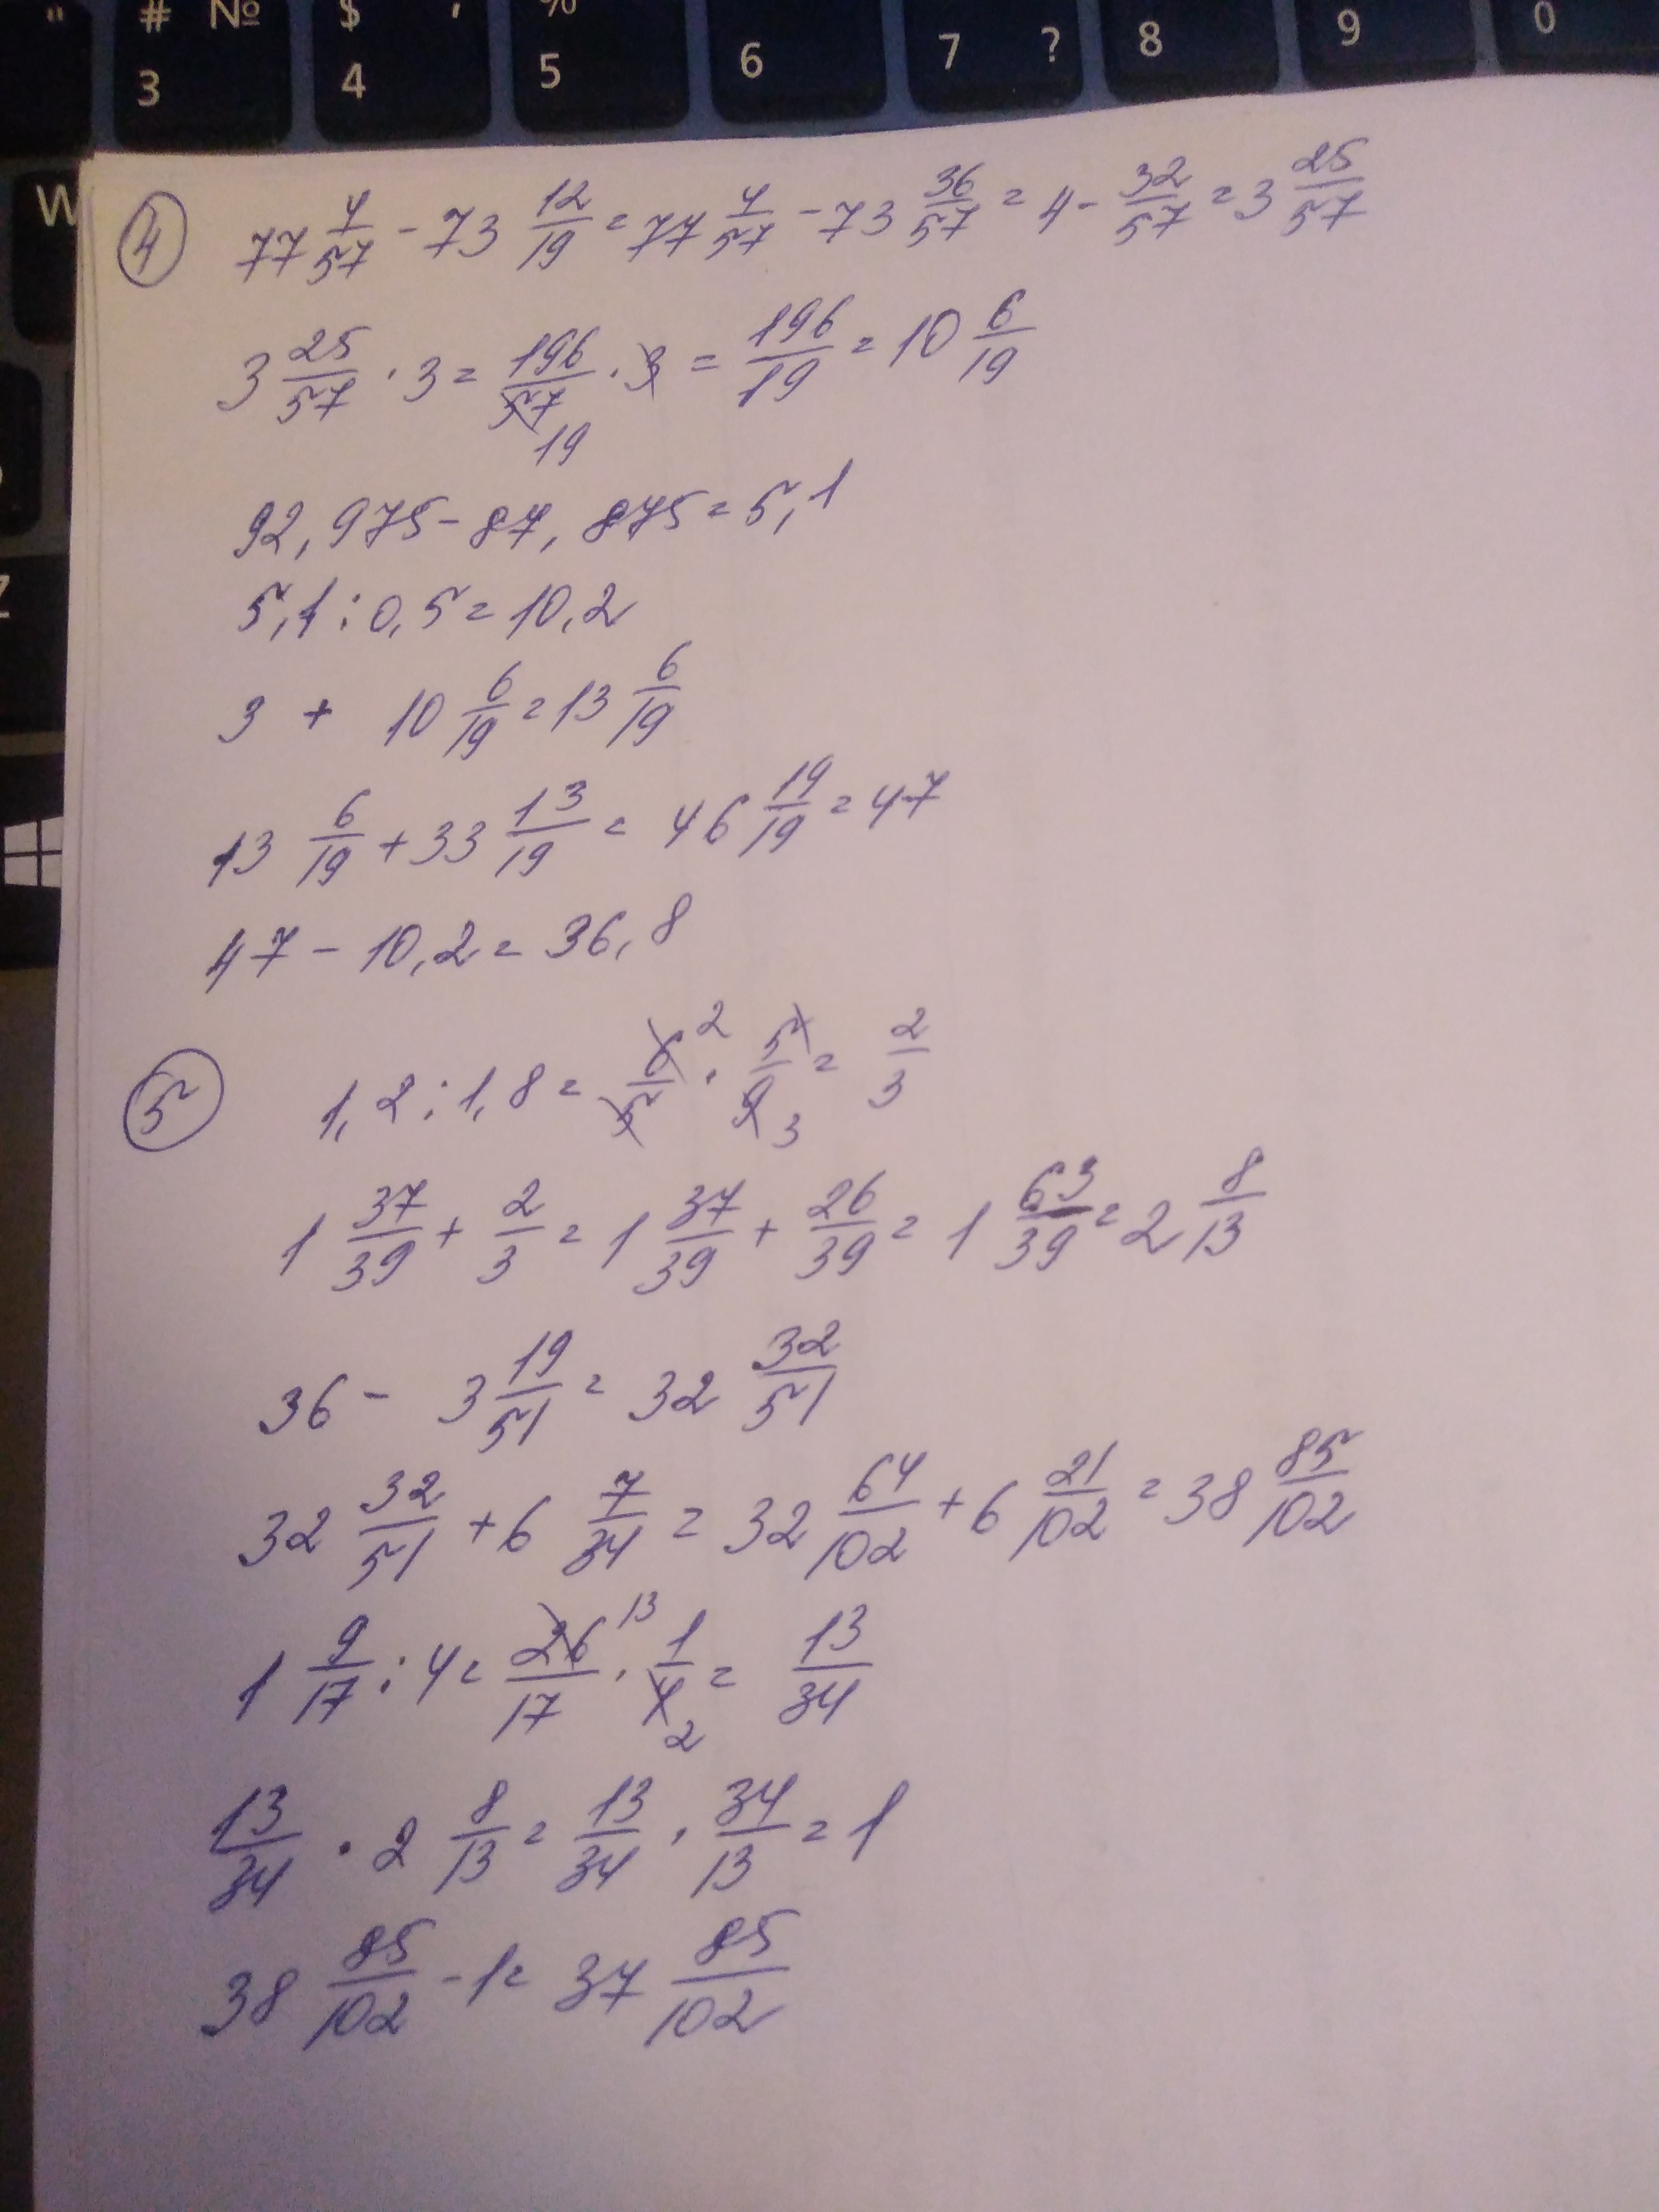 " # № $ ' %
3 4 5 6 7 ? 8 9 0
W
Z
4 77 4/57 - 73 12/19 = 77 4/57 - 73 36/57 = 4 - 32/57 = 3 25/57
3 25/57 · 3 = 196/57 · 3 = 196/19 = 10 6/19
19
92,975 - 87,875 = 5,1
5,1 : 0,5 = 10,2
3 + 10 6/19 = 13 6/19
13 6/19 + 33 13/19 = 46 19/19 = 47
47 - 10,2 = 36,8
5 1,2 : 1,8 = 6/5 2 · 5/9 3 = 2/3
1 37/39 + 2/3 = 1 37/39 + 26/39 = 1 63/39 = 2 8/13
36 - 3 19/51 = 32 32/51
32 32/51 + 6 7/34 = 32 64/102 + 6 21/102 = 38 85/102
1 9/17 : 4 = 26/17 13 · 1/4 2 = 13/34
13/34 · 2 8/13 = 13/34 · 34/13 = 1
38 85/102 - 1 = 37 85/102